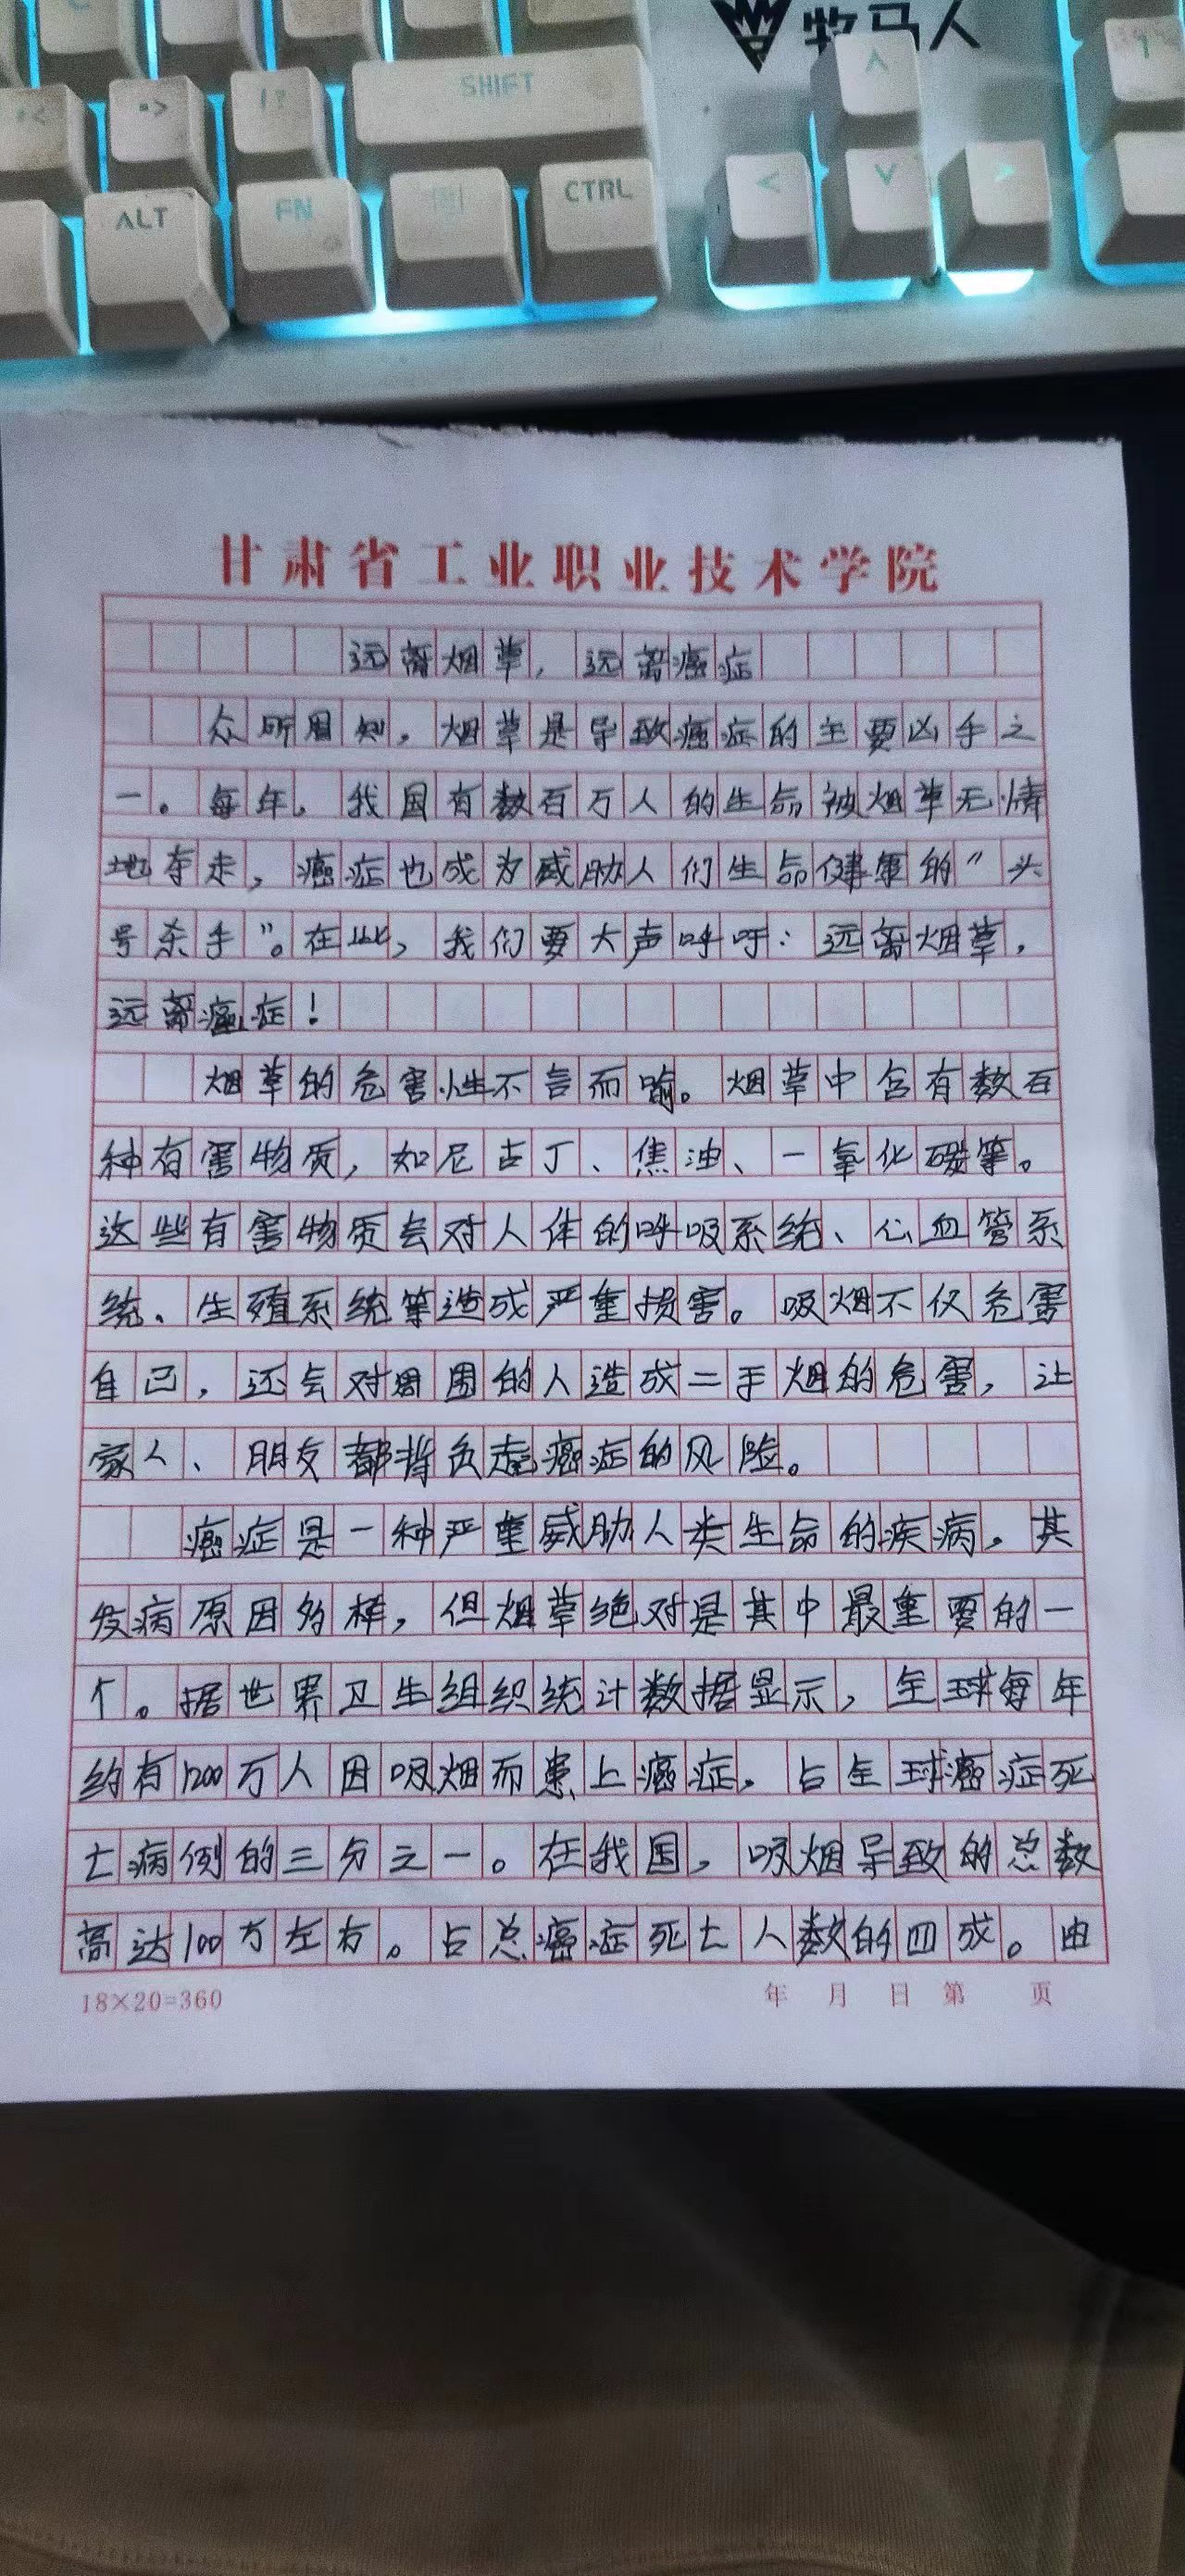 牧马人
SHIFT
ALT
FN
CTRL
甘肃省工业职业技术学院
远离烟草，远离癌症
众所周知，烟草是导致癌症的主要凶手之
一。每年，我国有数百万人的生命被烟草无情
地夺走，癌症也成为威胁人们生命健康的“头
号杀手”。在此，我们要大声呼吁：远离烟草，
远离癌症！
烟草的危害性不言而喻。烟草中含有数百
种有害物质，如尼古丁、焦油、一氧化碳等。
这些有害物质会对人体的呼吸系统、心血管系
统、生殖系统等造成严重损害。吸烟不仅危害
自己，还会对周围的人造成二手烟的危害，让
家人、朋友都背负起癌症的风险。
癌症是一种严重威胁人类生命的疾病，其
发病原因多样，但烟草绝对是其中最重要的一
个。据世界卫生组织统计数据显示，全球每年
约有1200万人因吸烟而患上癌症，占全球癌症死
亡病例的三分之一。在我国，吸烟导致的总数
高达100万左右。占总癌症死亡人数的四成。由
18×20=360
年 月 日 第 页